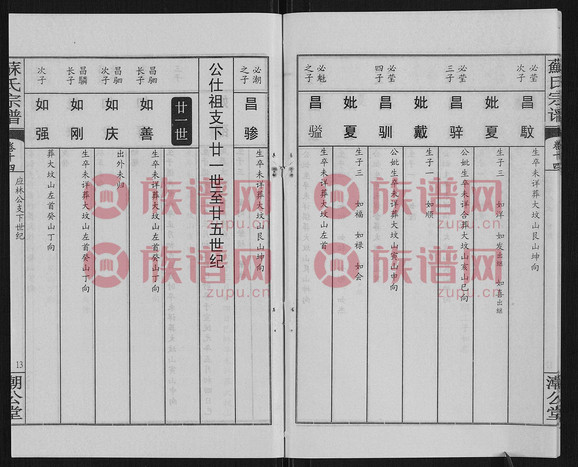 蘇氏宗谱
卷十四
潮公堂
必莹次子
昌駇
生卒未详葬大坟山艮山坤向
必莹三子
昌骍
生卒未详合葬大坟山亥山巳向
妣夏
生子三 如洋 如发出继 如喜出继
必莹四子
昌驯
公妣生卒未详葬大坟山寅山申向
妣戴
生子一 如顺
妣夏
生子三 如福 如禄 如会
必魁之子
昌
生卒未详葬大坟山左首
必潮之子
昌骖
生卒未详葬大坟山艮山坤向
公仕祖支下廿一世至廿五世纪
廿一世
昌驰长子
如善
生卒未详葬大坟山左首癸山丁向
昌驰次子
如庆
出外未归
昌驎长子
如刚
生卒未详葬大坟山左首癸山丁向
次子
如强
葬大坟山左首癸山丁向
蘇氏宗谱
卷十四
应林公支下世纪
13
潮公堂
族谱网
zupu.cn
族谱网
zupu.cn
族谱网
zupu.cn
族谱网
zupu.cn